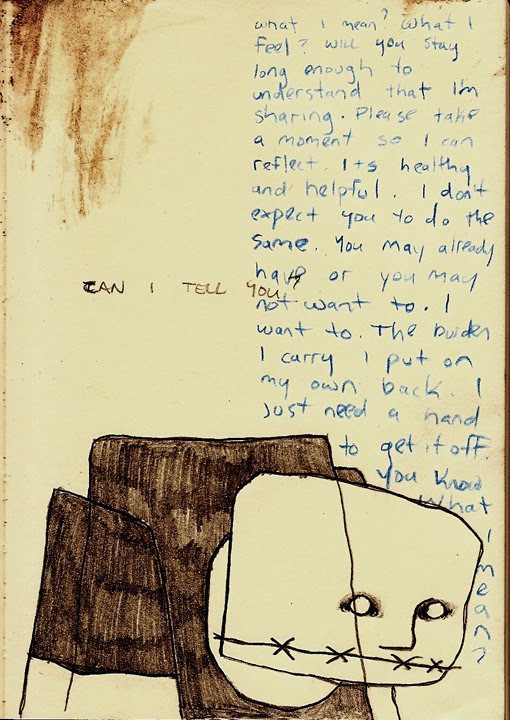 what I mean? What I
feel? will you stay
long enough to
understand that I'm
sharing. Please take
a moment so I can
reflect. Its healthy
and helpful. I don't
expect you to do the
same. You may already
have or you may
not want to. I
want to. The burden
I carry I put on
my own back. I
just need a hand
to get it off.
You know
What
I
mean?
CAN I TELL YOU?